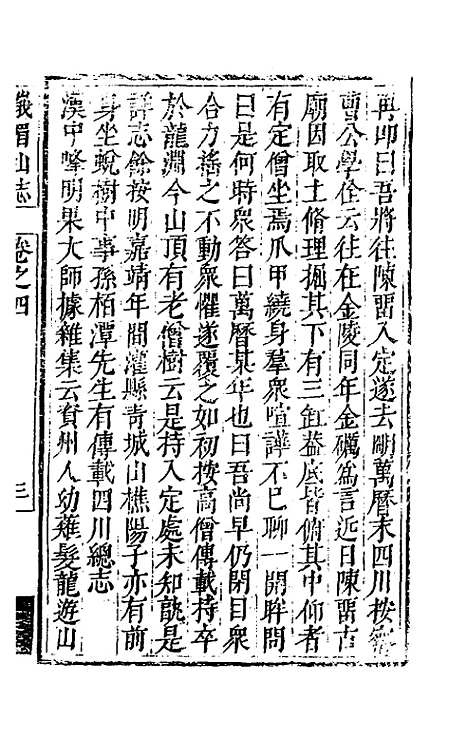 再即曰吾將往陳畱入定遂去明萬曆末四川按察
曹公學佺云往在金陵同年金礪為言近日陳畱古
廟因取土脩理掘其下有三缸葢底皆俯其中仰者
有定僧坐焉爪甲繞身羣衆喧譁不已聊一開眸問
曰是何時衆答曰萬曆某年也曰吾尚早仍閉目衆
合力搖之不動衆懼遂覆之如初按高僧傳載持卒
於龍淵今山頂有老僧樹云是持入定處未知訛是
詳志餘按明嘉靖年間灌縣青城山樵陽子亦有前
身坐蛻樹中事孫栢潭先生有傳載四川總志
漢中峰明果大師據雜集云資州人幼薙髮龍遊山
峨眉山志
卷之四
三